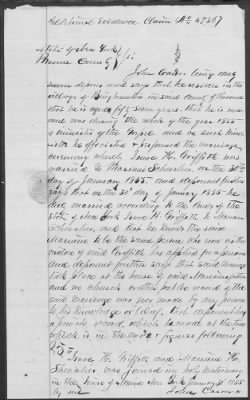 Additional Evidence Claim No 47367
State of New York
Broome County
John being duly
sworn deposes and says that he resides in the
village of Binghamton in said County of Broome
that he is aged fifty six years that he is now
and was during the whole of the year 1855
a minister of the Gospel and as such min
ister he officiated & performed the marriage
ceremony which Isaac H. Griffith was
married to Mariam Schenalier on the 31st
day of January 1855 and deponent further
says that on the 31st day of January 1855 he
did married according to the laws of the
State of New York Isaac H. Griffith to Mariam
and that he knew the said
Mariam to be the same who now as the
widow of said Griffith has applied for a pension
and deponent further says that said marriage
took place at the house of said
and no church or other public record of the
said marriage was ever made by any person
to his knowledge or belief. But deponent kept
a private record, which he made at the time
which is in the words & figures following
1855
Isaac H. Griffith and Mariam H.
was joined in holy matrimony
in the Town of January 31st 1855
by me John